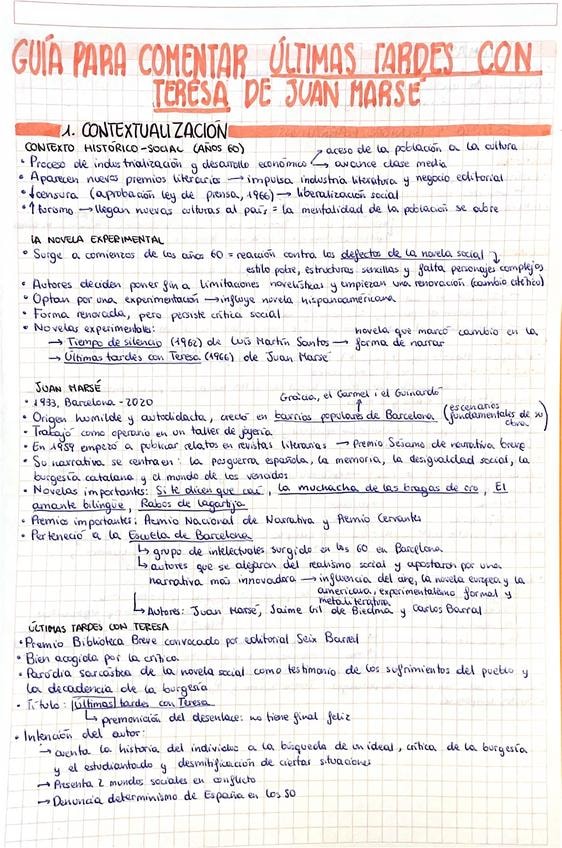 GUÍA PARA COMENTAR ÚLTIMAS TARDES CON
TERESA DE JUAN MARSÉ
1. CONTEXTUALIZACIÓN
CONTEXTO HISTÓRICO-SOCIAL (AÑOS 60)
→ aceso de la población a la cultura
• Proceso de industrialización y desarrollo económico → avance clase media
• Aparecen nuevos premios literarios → impulsa industria literatura y negocio editorial
• ↓censura (aprobación ley de prensa, 1966) → liberalización social
• ↑ turismo → llegan nuevas culturas al país = la mentalidad de la población se abre
LA NOVELA EXPERIMENTAL
• Surge a comienzos de los años 60 = reacción contra los defectos de la novela social
estilo pobre, estructuras sencillas y falta personajes complejos
• Autores deciden poner fin a limitaciones novelísticas y empiezan una renovación (cambio estético)
• Optan por una experimentación → influye novela hispanoamericana
• Forma renovada, pero persiste crítica social
• Novelas experimentales:
→ Tiempo de silencio (1962) de Luis Martín Santos → novela que marcó cambio en la forma de narrar
→ Últimas tardes con Teresa (1966) de Juan Marsé
JUAN MARSÉ
• 1933, Barcelona - 2020
Gràcia, el Carmel i el Guinardó
• Origen humilde y autodidacta, creció en barrios populares de Barcelona (escenarios fundamentales de su obra)
• Trabajó como operario en un taller de joyería
• En 1959 empezó a publicar relatos en revistas literarias → Premio Sésamo de narrativa breve
• Su narrativa se centra en: la posguerra española, la memoria, la desigualdad social, la
burgesía catalana y el mundo de los vencidos
• Novelas importantes: Si te dicen que caí, la muchacha de las bragas de oro, El
amante bilingüe, Rabos de lagartija
• Premios importantes: Premio Nacional de Narrativa y Premio Cervantes
• Perteneció a la Escuela de Barcelona
↳ grupo de intelectuales surgido en los 60 en Barcelona
↳ autores que se alejaron del realismo social y apostaron por una
narrativa más innovadora → influencia del cine, la novela europea y la
americana, experimentalismo formal y
metaliteratura
↳ Autores: Juan Marsé, Jaime Gil de Biedma y Carlos Barral
ÚLTIMAS TARDES CON TERESA
• Premio Biblioteca Breve convocado por editorial Seix Barral
• Bien acogida por la crítica
• Parodia sarcástica de la novela social como testimonio de los sufrimientos del pueblo y
la decadencia de la burgesía
• Título: Últimas tardes con Teresa
↳ premonición del desenlace: no tiene final feliz
• Intención del autor:
→ cuenta la historia del individuo a la búsqueda de un ideal, crítica de la burgesía
y el estudiantado y desmitificación de ciertas situaciones
→ Presenta 2 mundos sociales en conflicto
→ Denuncia determinismo de España en los 50